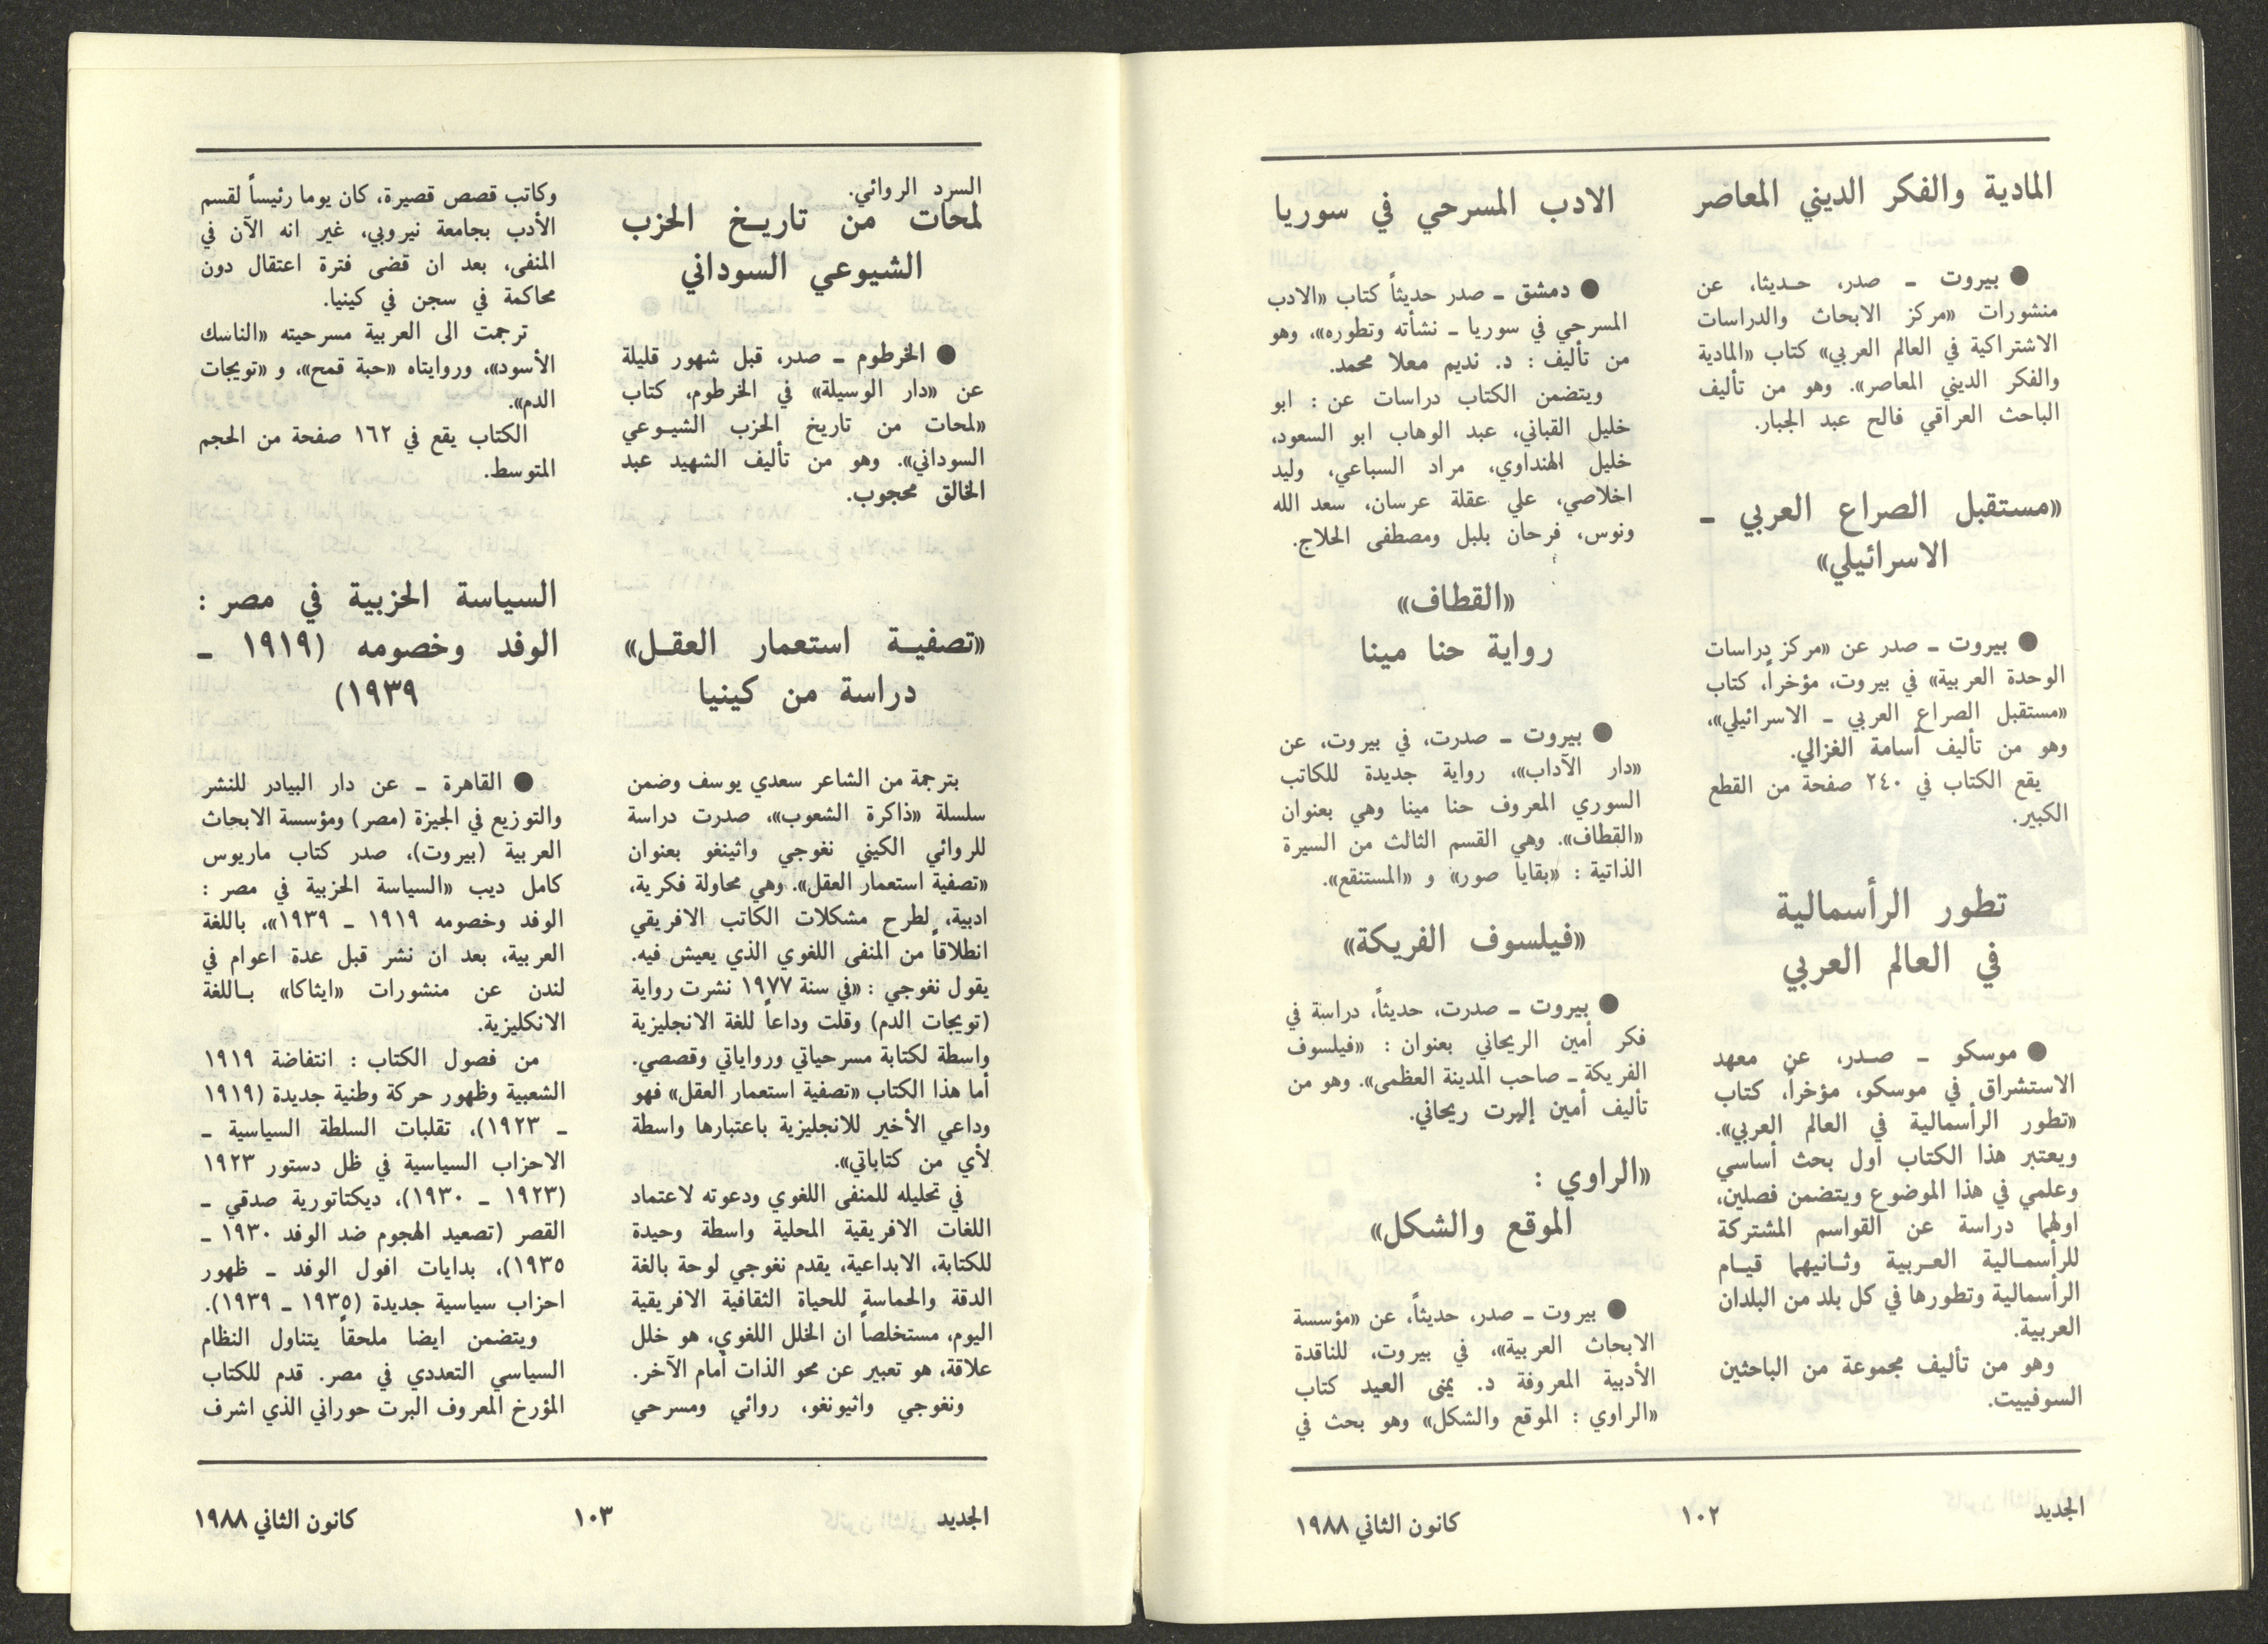 المادية والفكر الديني المعاصر
● بيروت ـ صدر، حديثا، عن
منشورات «مركز الابحاث والدراسات
الاشتراكية في العالم العربي» كتاب «المادية
والفكر الديني المعاصر». وهو من تأليف
الباحث العراقي فالح عبد الجبار.
«مستقبل الصراع العربي ـ
الاسرائيلي»
● بيروت ـ صدر عن «مركز دراسات
الوحدة العربية» في بيروت، مؤخراً، كتاب
«مستقبل الصراع العربي ـ الاسرائيلي»،
وهو من تأليف أسامة الغزالي.
يقع الكتاب في ٢٤٠ صفحة من القطع
الكبير.
تطور الرأسمالية
في العالم العربي
● موسكو ـ صدر، عن معهد
الاستشراق في موسكو، مؤخراً، كتاب
«تطور الرأسمالية في العالم العربي».
ويعتبر هذا الكتاب اول بحث أساسي
وعلمي في هذا الموضوع ويتضمن فصلين،
اولهما دراسة عن القواسم المشتركة
للرأسمالية العربية وثانيهما قيام
الرأسمالية وتطورها في كل بلد من البلدان
العربية.
وهو من تأليف مجموعة من الباحثين
السوفييت.
الادب المسرحي في سوريا
● دمشق ـ صدر حديثاً كتاب «الادب
المسرحي في سوريا ـ نشأته وتطوره»، وهو
من تأليف : د. نديم معلا محمد.
ويتضمن الكتاب دراسات عن : ابو
خليل القباني، عبد الوهاب ابو السعود،
خليل الهنداوي، مراد السباعي، وليد
اخلاصي، علي عقلة عرسان، سعد الله
ونوس، فرحان بلبل ومصطفى الحلاج.
«القطاف»
رواية حنا مينا
● بيروت ـ صدرت، في بيروت، عن
«دار الآداب»، رواية جديدة للكاتب
السوري المعروف حنا مينا وهي بعنوان
«القطاف». وهي القسم الثالث من السيرة
الذاتية : «بقايا صور» و «المستنقع».
«فيلسوف الفريكة»
● بيروت ـ صدرت، حديثاً، دراسة في
فكر أمين الريحاني بعنوان : «فيلسوف
الفريكة ـ صاحب المدينة العظمى». وهو من
تأليف أمين إلبرت ريحاني.
«الراوي :
الموقع والشكل»
● بيروت ـ صدر، حديثاً، عن «مؤسسة
الابحاث العربية»، في بيروت، للناقدة
الأدبية المعروفة د. يمنى العيد كتاب
«الراوي : الموقع والشكل» وهو بحث في
الجديد
١٠٢
كانون الثاني ١٩٨٨
السرد الروائي.
لمحات من تاريخ الحزب
الشيوعي السوداني
● الخرطوم ـ صدر، قبل شهور قليلة
عن «دار الوسيلة» في الخرطوم، كتاب
«لمحات من تاريخ الحزب الشيوعي
السوداني». وهو من تأليف الشهيد عبد
الخالق محجوب.
«تصفية استعمار العقل»
دراسة من كينيا
بترجمة من الشاعر سعدي يوسف وضمن
سلسلة «ذاكرة الشعوب»، صدرت دراسة
للروائي الكيني نغوجي واثينغو بعنوان
«تصفية استعمار العقل». وهي محاولة فكرية،
ادبية، لطرح مشكلات الكاتب الافريقي
انطلاقاً من المنفى اللغوي الذي يعيش فيه.
يقول نغوجي : «في سنة ١٩٧٧ نشرت رواية
(تويجات الدم) وقلت وداعاً للغة الانجليزية
واسطة لكتابة مسرحياتي ورواياتي وقصصي.
أما هذا الكتاب «تصفية استعمار العقل» فهو
وداعي الأخير للانجليزية باعتبارها واسطة
لأي من كتاباتي».
في تحليله للمنفى اللغوي ودعوته لاعتماد
اللغات الافريقية المحلية واسطة وحيدة
للكتابة، الابداعية، يقدم نغوجي لوحة بالغة
الدقة والحماسة للحياة الثقافية الافريقية
اليوم، مستخلصاً ان الخلل اللغوي، هو خلل
علاقة، هو تعبير عن محو الذات أمام الآخر.
ونغوجي واثيونغو، روائي ومسرحي
وكاتب قصص قصيرة، كان يوما رئيساً لقسم
الأدب بجامعة نيروبي، غير انه الآن في
المنفى، بعد ان قضى فترة اعتقال دون
محاكمة في سجن في كينيا.
ترجمت الى العربية مسرحيته «الناسك
الأسود»، وروايتاه «حبة قمح»، و «تويجات
الدم».
الكتاب يقع في ١٦٢ صفحة من الحجم
المتوسط.
السياسة الحزبية في مصر :
الوفد وخصومه (١٩١٩ ـ
١٩٣٩)
● القاهرة ـ عن دار البيادر للنشر
والتوزيع في الجيزة (مصر) ومؤسسة الابحاث
العربية (بيروت)، صدر كتاب ماريوس
كامل ديب «السياسة الحزبية في مصر :
الوفد وخصومه ١٩١٩ ـ ١٩٣٩»، باللغة
العربية، بعد ان نشر قبل عدة اعوام في
لندن عن منشورات «ايثاكا» باللغة
الانكليزية.
من فصول الكتاب : انتفاضة ١٩١٩
الشعبية وظهور حركة وطنية جديدة (١٩١٩
ـ ١٩٢٣)، تقلبات السلطة السياسية ـ
الاحزاب السياسية في ظل دستور ١٩٢٣
(١٩٢٣ ـ ١٩٣٠)، ديكتاتورية صدقي ـ
القصر (تصعيد الهجوم ضد الوفد ١٩٣٠ ـ
١٩٣٥)، بدايات افول الوفد ـ ظهور
احزاب سياسية جديدة (١٩٣٥ ـ ١٩٣٩).
ويتضمن ايضا ملحقاً يتناول النظام
السياسي التعددي في مصر. قدم للكتاب
المؤرخ المعروف البرت حوراني الذي اشرف
الجديد
١٠٣
كانون الثاني ١٩٨٨